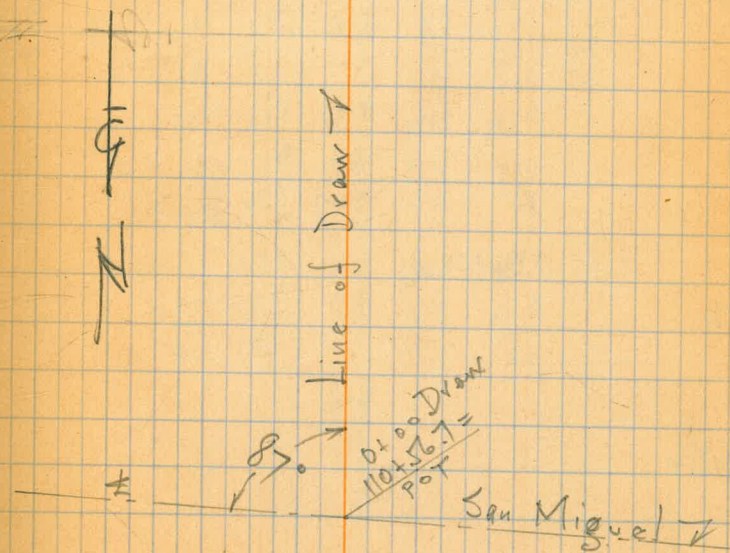 N
Line of Draw
87°
0+00 Draw
110+56.7=
POT
San Miguel